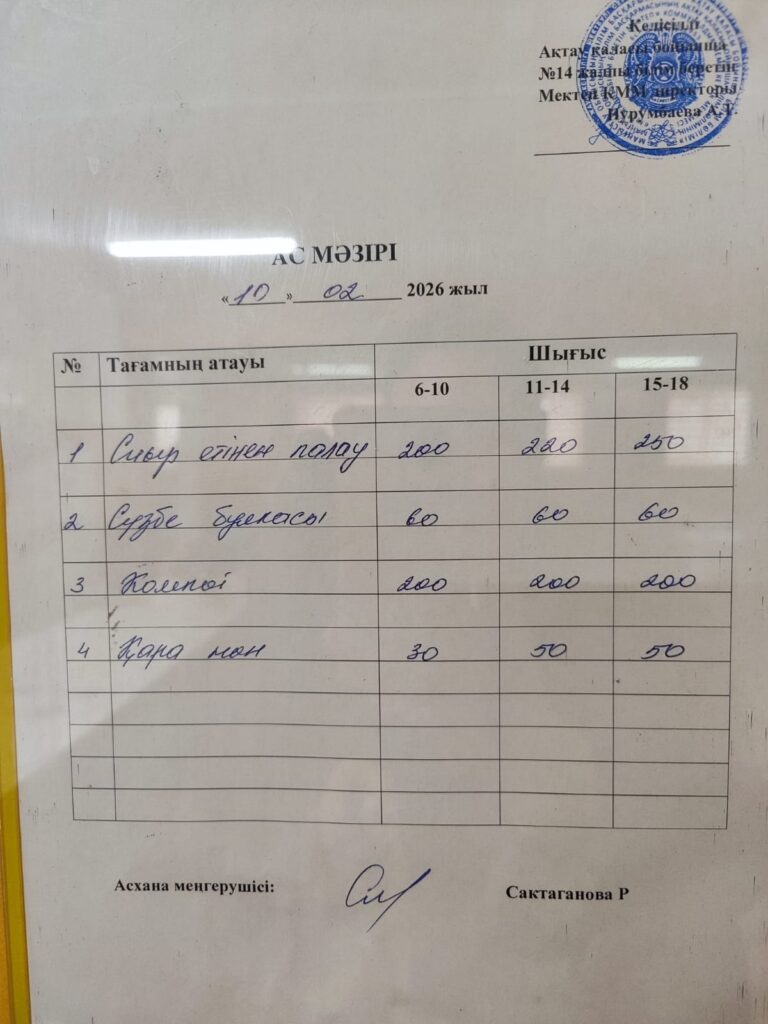 Келісілді
Ақтау қаласы бойынша
№14 жалпы білім беретін
Мектеп КММ директоры
Нурумбаева А.Т.
АС МӘЗІРІ
«10» 02 2026 жыл
№ Тағамның атауы Шығыс
6-10 11-14 15-18
1 Сиыр етінен палау 200 220 250
2 Сүзбе булкасы 60 60 60
3 Компот 200 200 200
4 Қара нан 30 50 50
Асхана меңгерушісі: Сактаганова Р